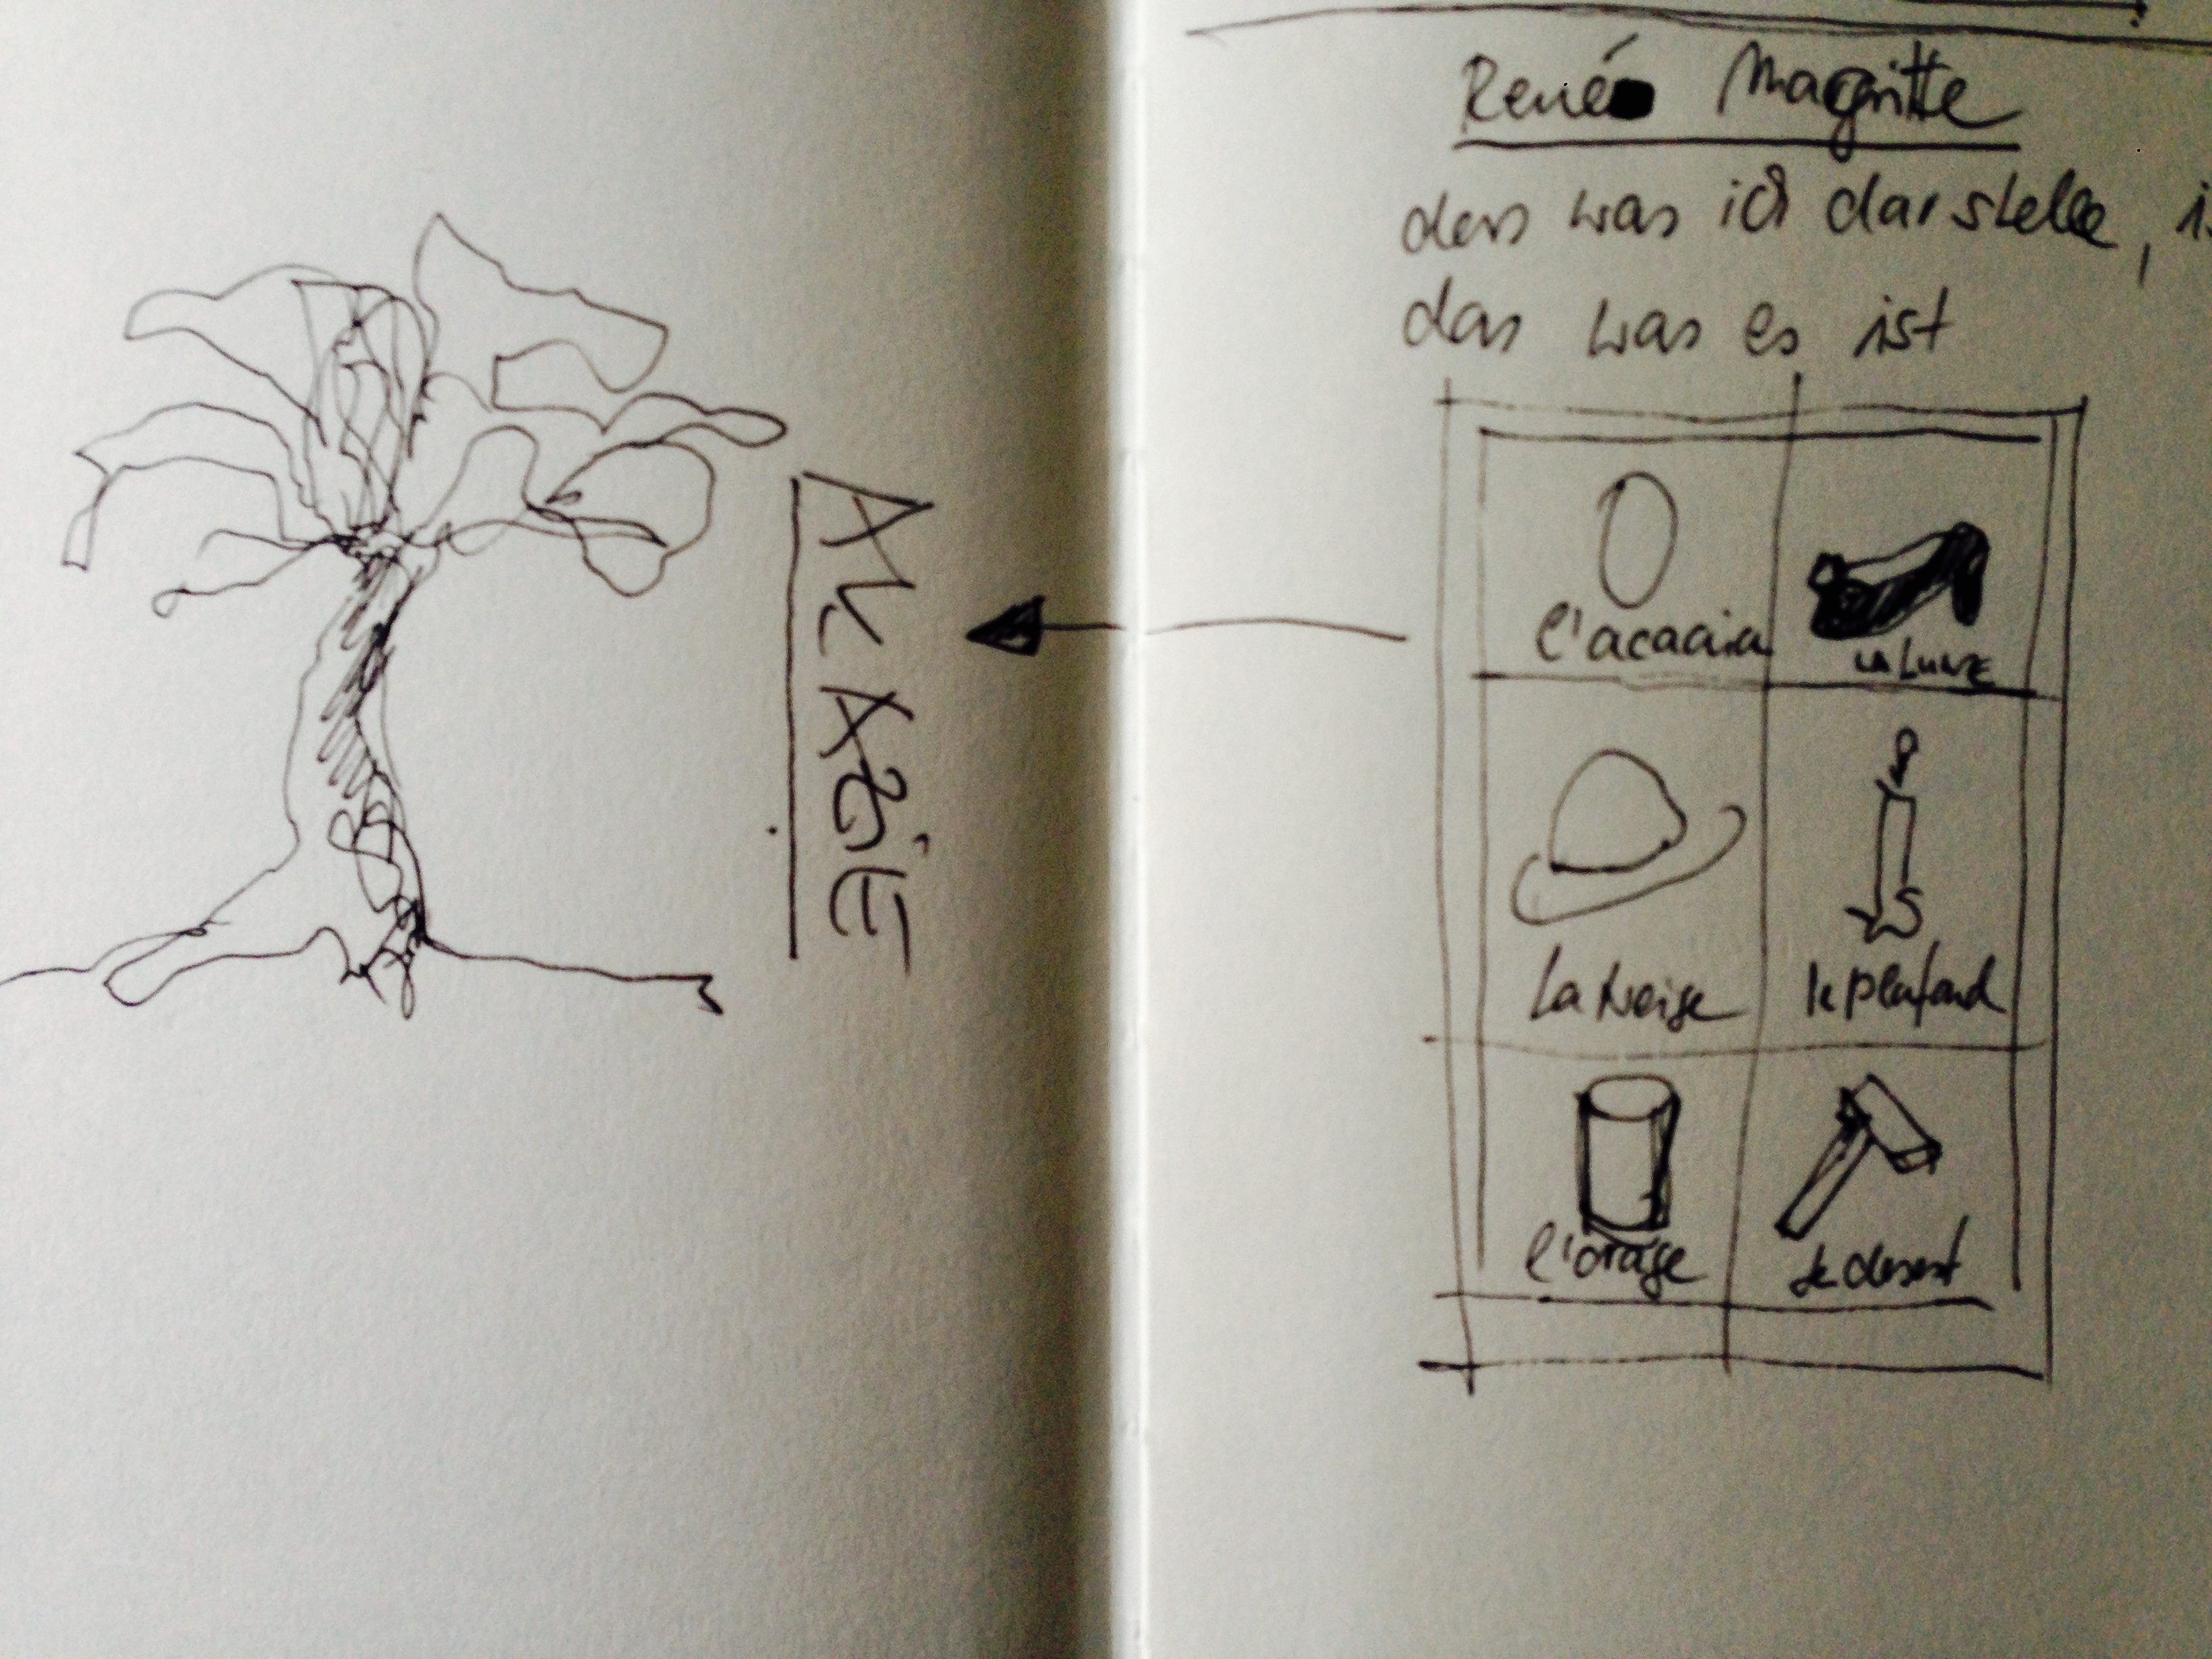 AKAZiE
René Magritte
das was ich darstelle, is
das was es ist
l'acacia
LA LUNE
La Neige
le Plafond
l'orage
le desert